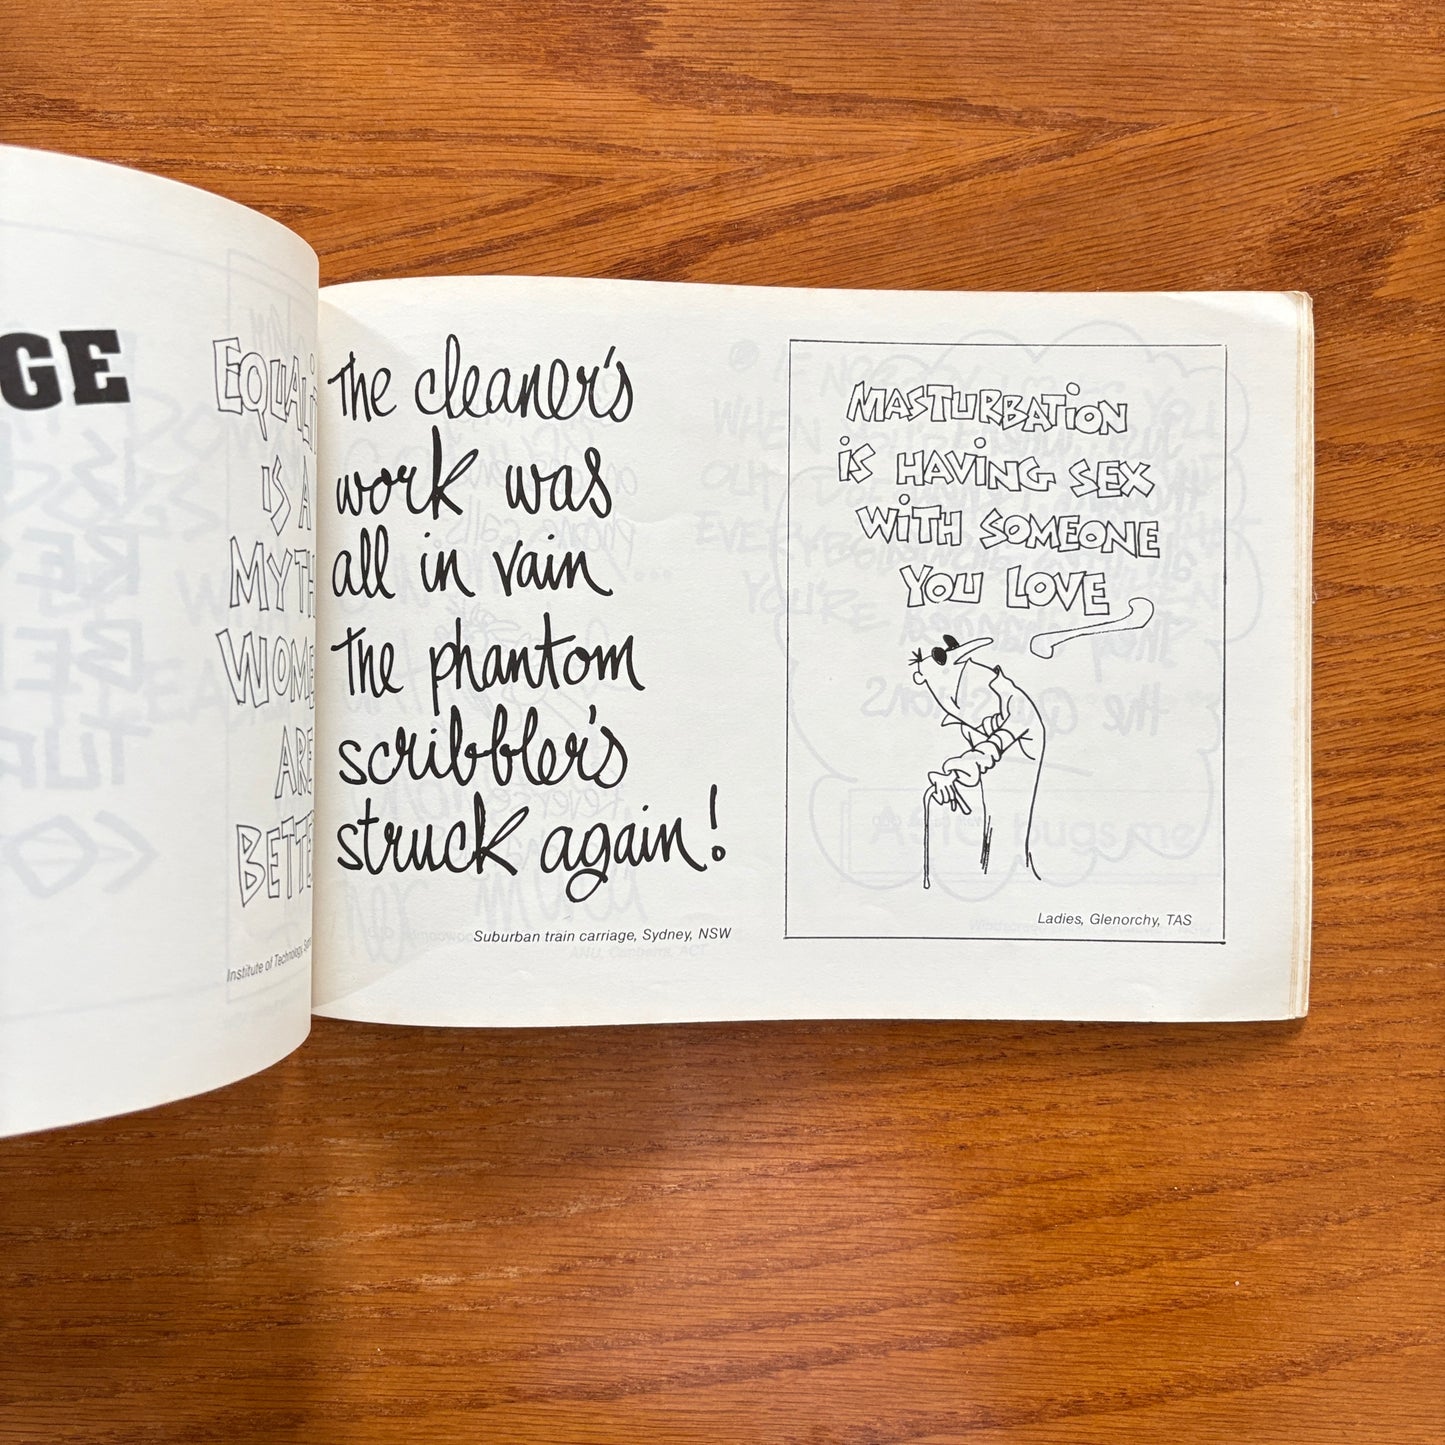 GE
EQUALI
IS A
MYTH
WOME
ARE
BETTE
Institute of Technology,
The cleaner's
work was
all in vain
The phantom
scribbler's
struck again!
Suburban train carriage, Sydney, NSW
MASTURBATION
iS HAViNG SEX
WiTH SOMEONE
YOU LOVE
Ladies, Glenorchy, TAS